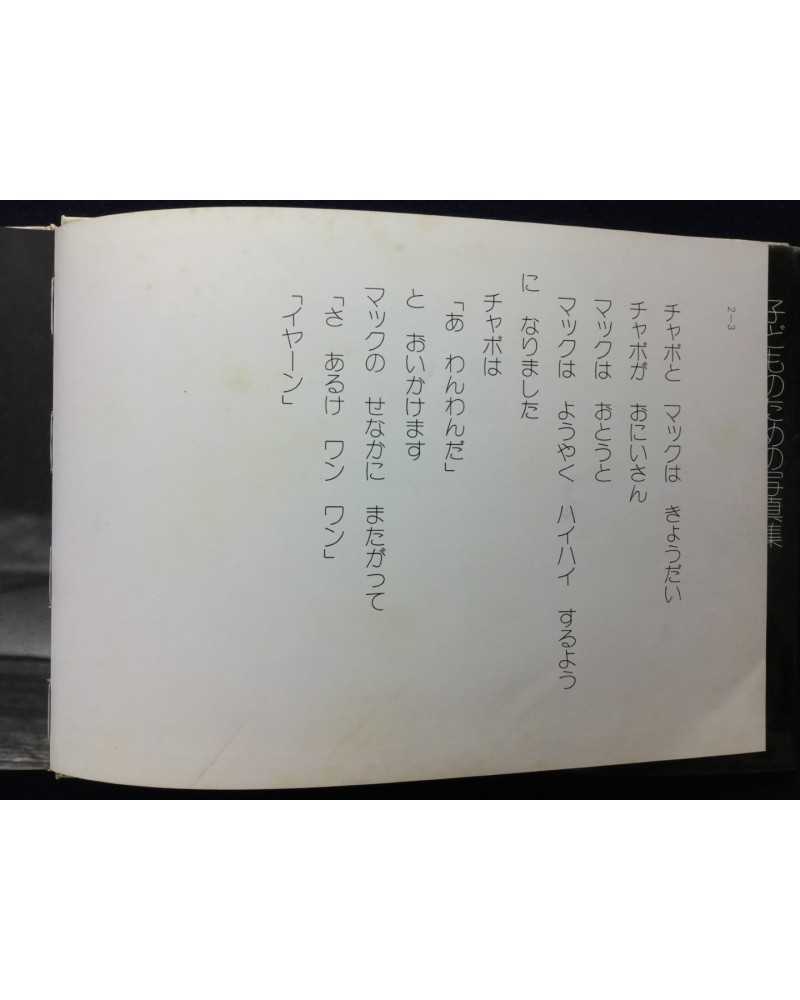 子どものための写真集
2–3
チャポと マックは きょうだい
チャポが おにいさん
マックは おとうと
マックは ようやく ハイハイ するよう
に なりました
チャポは
「あ わんわんだ」
と おいかけます
マックの せなかに またがって
「さ あるけ ワン ワン」
「イヤーン」